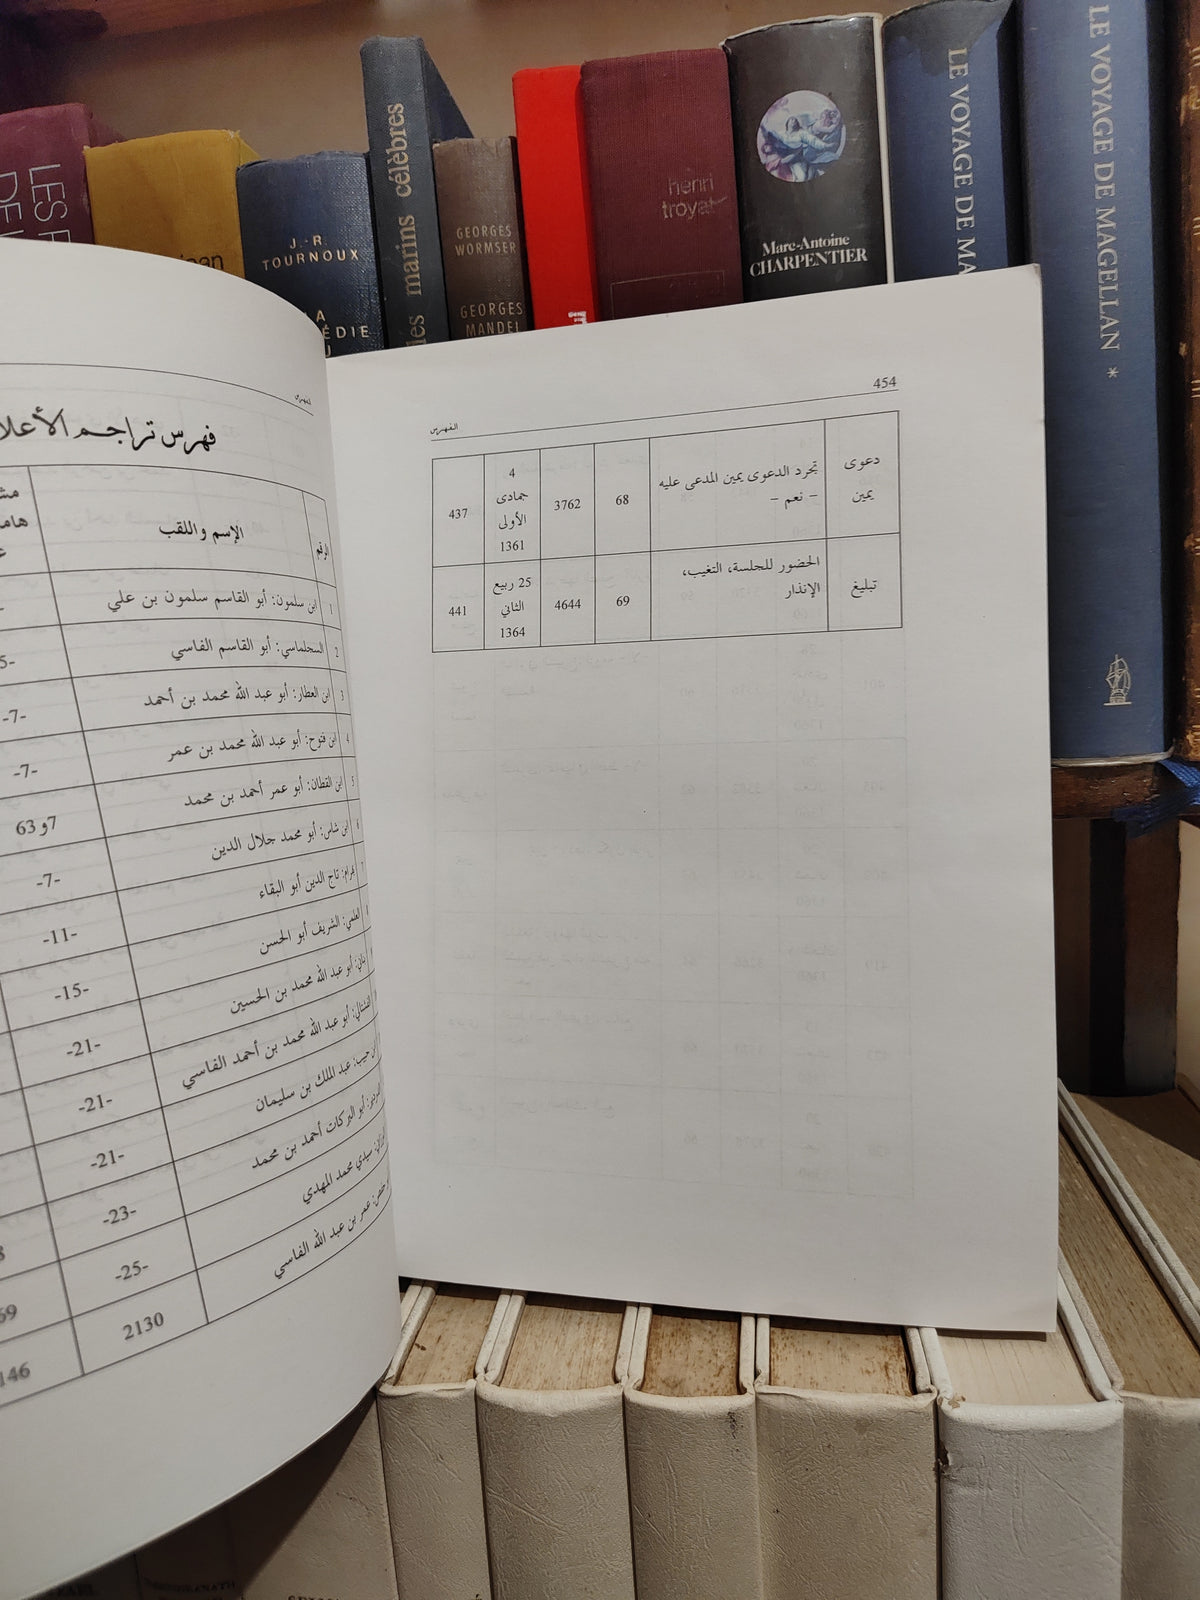 LE VOYAGE DE MAGELLAN *
LE VOYAGE DE MA
Marc-Antoine
CHARPENTIER
henri
troyat
GEORGES
WORMSER
GEORGES
MANDEL
marins célèbres
J.-R.
TOURNOUX
LES
454
الفهرس
دعوى يمين
تجرد الدعوى يمين المدعى عليه
– نعم –
68
3762
4 جمادى الأولى 1361
437
تبليغ
الحضور للجلسة، التغيب،
الإنذار
69
4644
25 ربيع الثاني 1364
441
الفهرس
فهرس تراجم
الرقم
الإسم واللقب
1 ابن سلمون: أبو القاسم سلمون بن علي
2 السجلماسي: أبو القاسم الفاسي
3 ابن العطار: أبو عبد الله محمد بن أحمد -7-
4 ابن فتوح: أبو عبد الله محمد بن عمر -7-
5 ابن القطان: أبو عمر أحمد بن محمد 7و63
6 ابن شاس: أبو محمد جلال الدين -7-
7 بهرام: تاج الدين أبو البقاء -11-
العلمي: الشريف أبو الحسن -15-
أبو عبد الله محمد بن الحسين -21-
أبو عبد الله محمد بن أحمد الفاسي -21-
عبد الملك بن سليمان -21-
أبو البركات أحمد بن محمد -23-
سيدي محمد المهدي -25-
عمر بن عبد الله الفاسي 2130